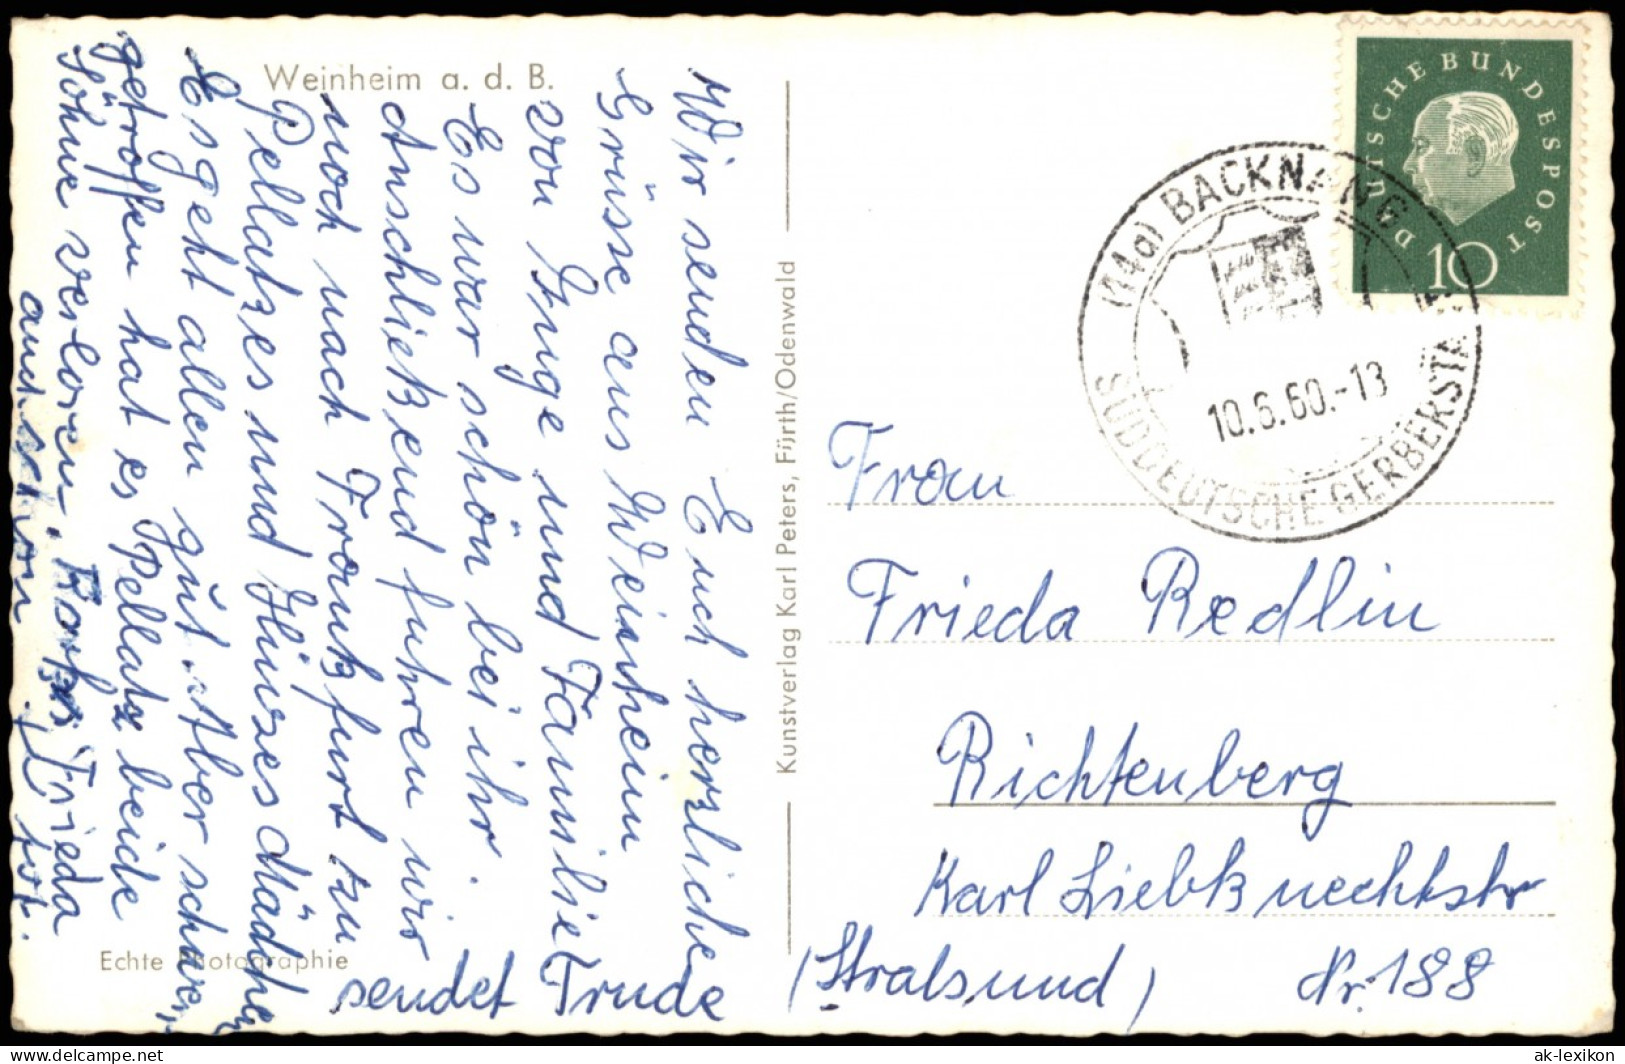 Weinheim a. d. B.
Wir senden Euch herzliche
Grüsse aus Weinheim
von Inge und Familie
Es war schön bei ihr.
Anschließend fuhren wir
noch nach Frankfurt zu
Pellatzes und Hinzes Mädchen
Es geht allen gut. Aber schwer
getroffen hat es Pellatz beide
Söhne verloren, Frieda
auch schon tot.
sendet Trude
Echte Photographie
Kunstverlag Karl Peters, Fürth/Odenwald
DEUTSCHE BUNDESPOST
10
(14a) BACKNANG
10.6.60.-13
SÜDDEUTSCHE GERBERSTADT
Frau
Frieda Redlin
Richtenberg
Karl Liebknechtstr
(Stralsund) Nr. 188
ak-lexikon
delcampe.net